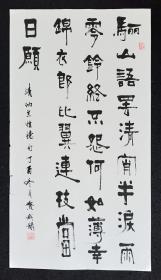 驪山語罷清宵半淚雨
零鈴終不怨何如薄幸
錦衣郎比翼連枝當
日願
清納蘭性德句丁酉冬月